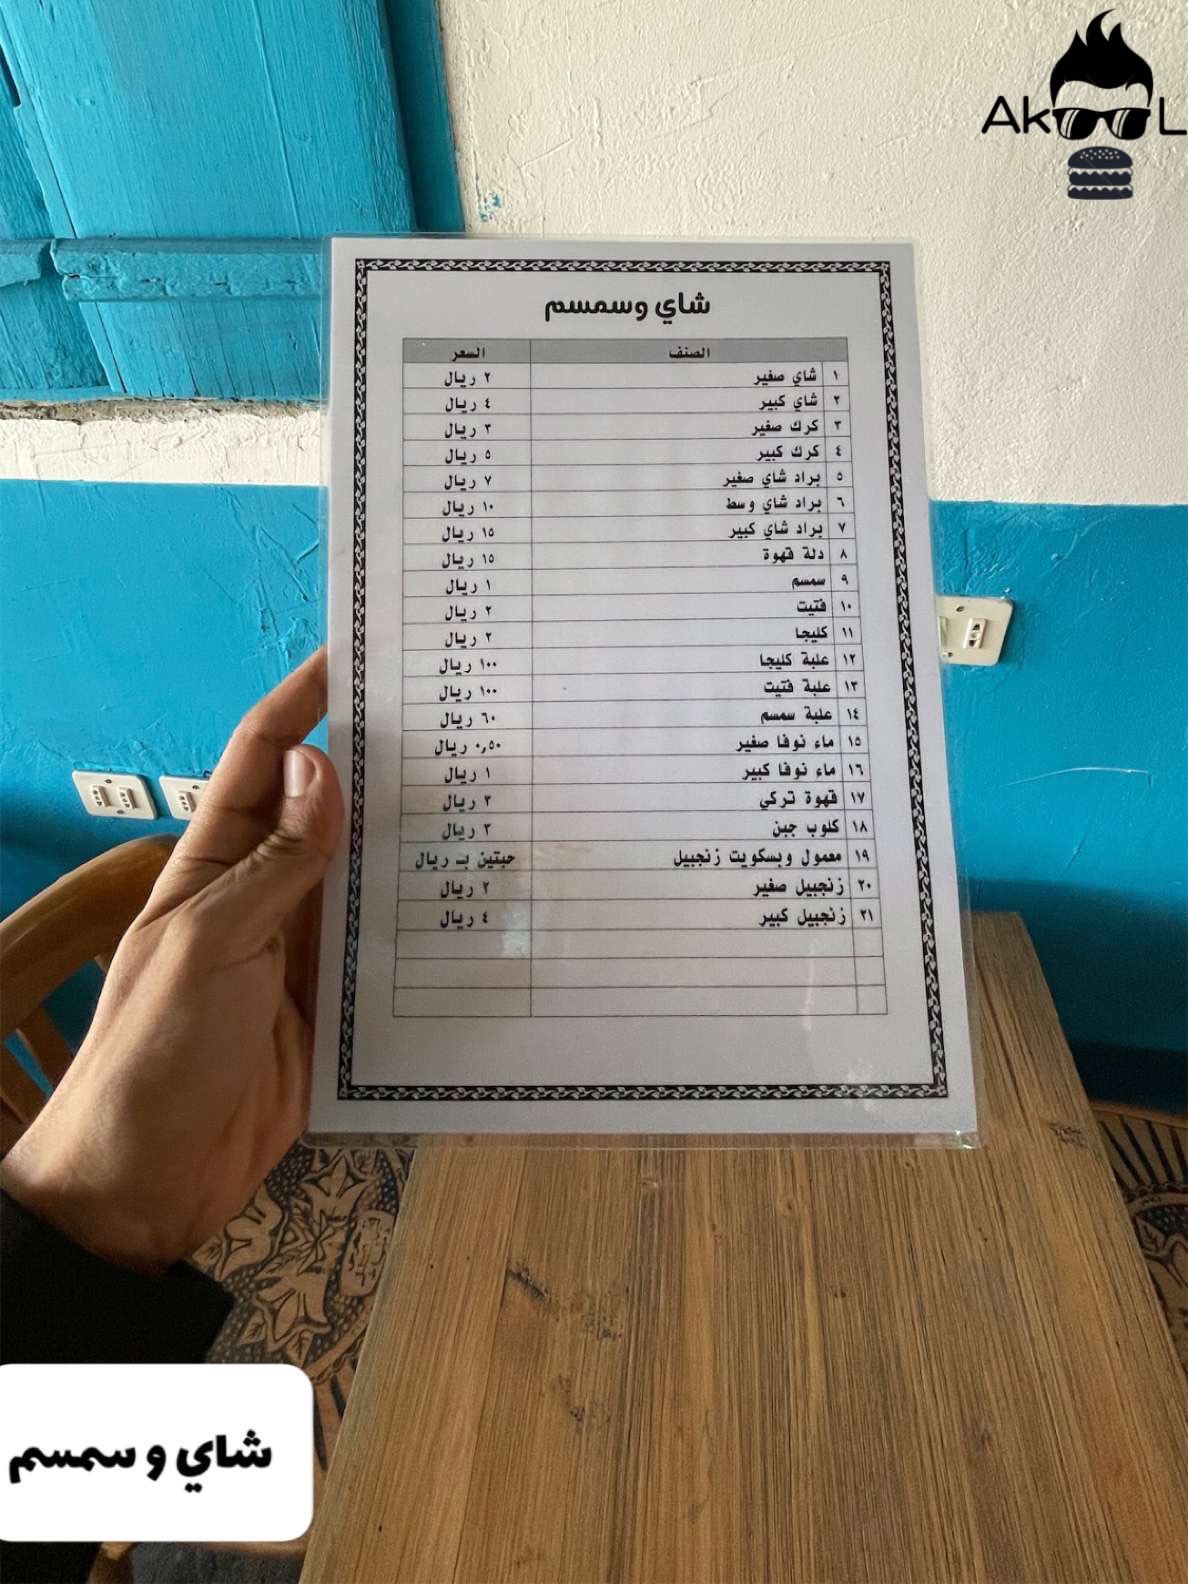 AkooL
شاي وسمسم
الصنف السعر
١ شاي صغير ٢ ريال
٢ شاي كبير ٤ ريال
٣ كرك صغير ٣ ريال
٤ كرك كبير ٥ ريال
٥ براد شاي صغير ٧ ريال
٦ براد شاي وسط ١٠ ريال
٧ براد شاي كبير ١٥ ريال
٨ دلة قهوة ١٥ ريال
٩ سمسم ١ ريال
١٠ فتيت ٢ ريال
١١ كليجا ٢ ريال
١٢ علبة كليجا ١٠٠ ريال
١٣ علبة فتيت ١٠٠ ريال
١٤ علبة سمسم ٦٠ ريال
١٥ ماء نوفا صغير ٠,٥٠ ريال
١٦ ماء نوفا كبير ١ ريال
١٧ قهوة تركي ٣ ريال
١٨ كلوب جبن ٣ ريال
١٩ معمول وبسكويت زنجبيل حبتين بـ ريال
٢٠ زنجبيل صغير ٢ ريال
٢١ زنجبيل كبير ٤ ريال
شاي و سمسم